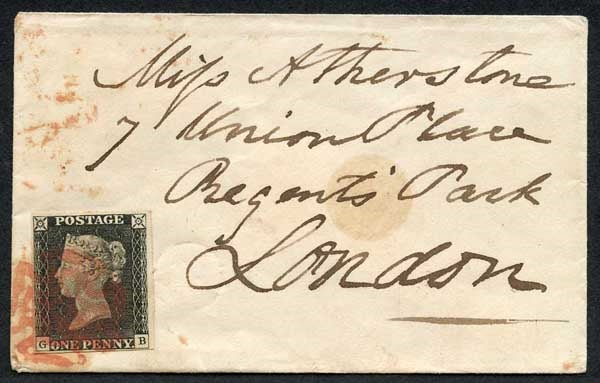 Miss Atherstone
7 Union Place
Regents Park
London
POSTAGE
ONE PENNY
G B